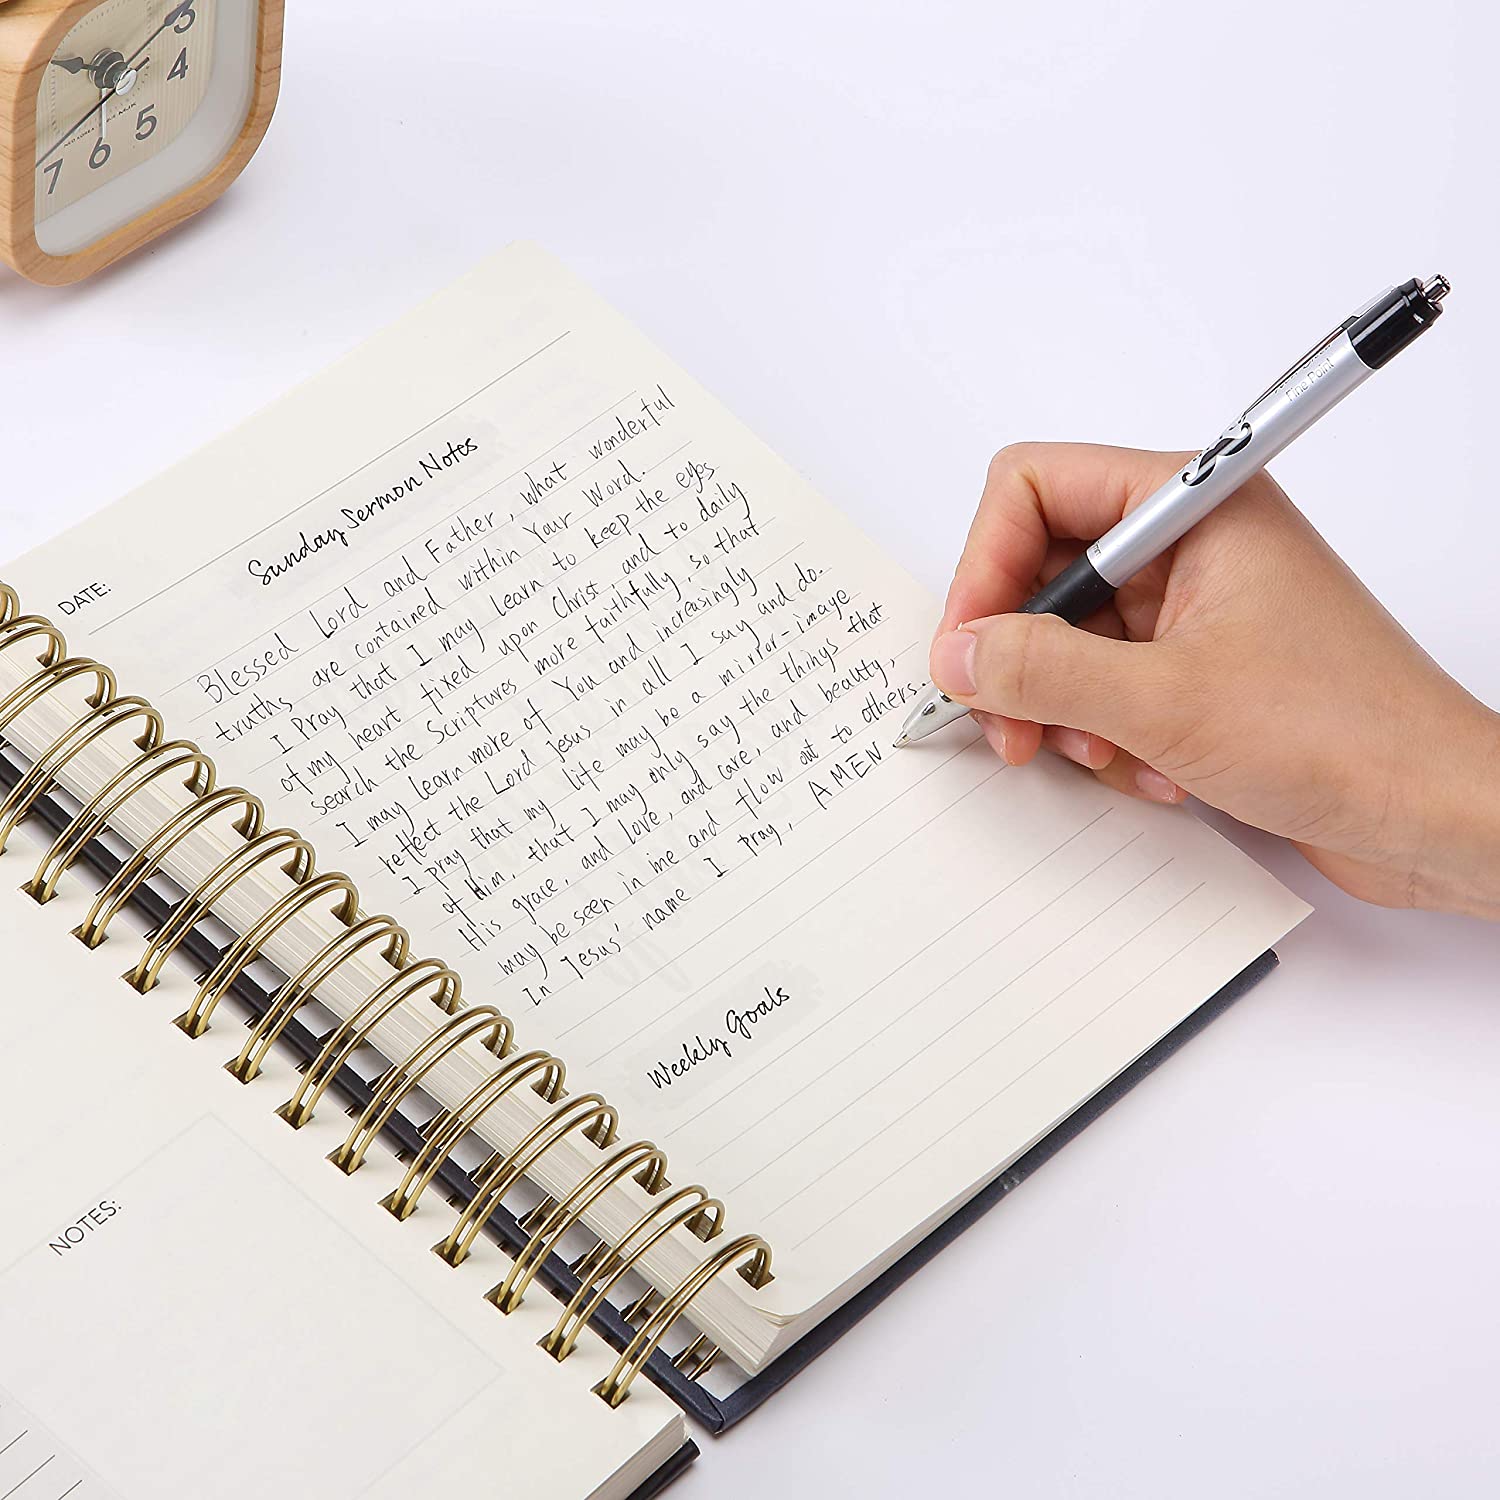 3
4
5
6
7
DATE:
Sunday Sermon Notes
Blessed Lord and Father, what wonderful
truths are contained within Your Word.
I Pray that I may learn to keep the eyes
of my heart fixed upon Christ, and to daily
search the Scriptures more faithfully, so that
I may learn more of You and increasingly
reflect the Lord Jesus in all I say and do.
I pray that my life may be a mirror-image
of Him, that I may only say the things that
His grace, and love, and care, and beauty,
may be seen in me and flow out to others.
In Jesus' name I pray, AMEN
Weekly Goals
NOTES:
Fine Point